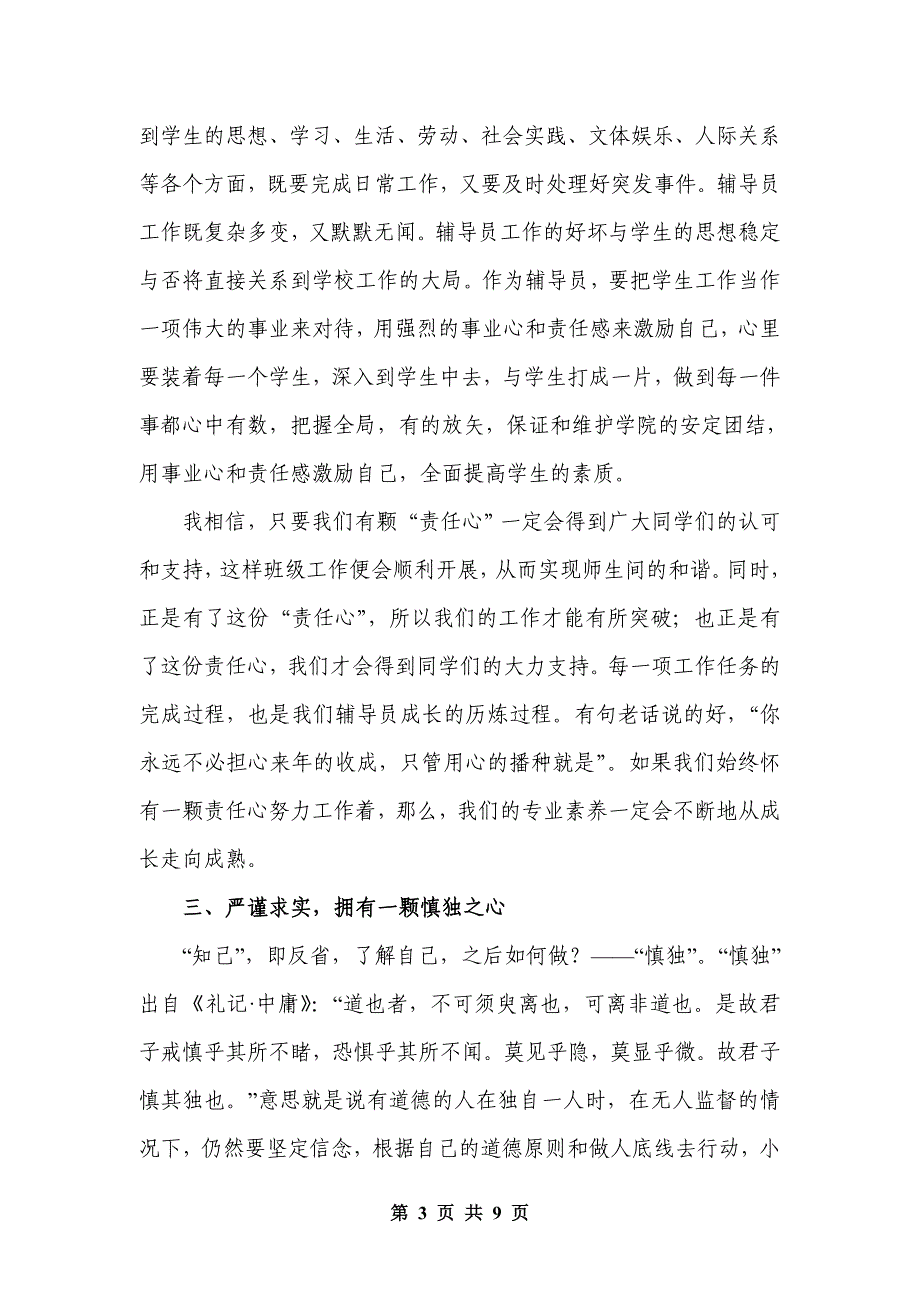 到学生的思想、学习、生活、劳动、社会实践、文体娱乐、人际关系
等各个方面，既要完成日常工作，又要及时处理好突发事件。辅导员
工作既复杂多变，又默默无闻。辅导员工作的好坏与学生的思想稳定
与否将直接关系到学校工作的大局。作为辅导员，要把学生工作当作
一项伟大的事业来对待，用强烈的事业心和责任感来激励自己，心里
要装着每一个学生，深入到学生中去，与学生打成一片，做到每一件
事都心中有数，把握全局，有的放矢，保证和维护学院的安定团结，
用事业心和责任感激励自己，全面提高学生的素质。
我相信，只要我们有颗“责任心”一定会得到广大同学们的认可
和支持，这样班级工作便会顺利开展，从而实现师生间的和谐。同时，
正是有了这份“责任心”，所以我们的工作才能有所突破；也正是有
了这份责任心，我们才会得到同学们的大力支持。每一项工作任务的
完成过程，也是我们辅导员成长的历炼过程。有句老话说的好，“你
永远不必担心来年的收成，只管用心的播种就是”。如果我们始终怀
有一颗责任心努力工作着，那么，我们的专业素养一定会不断地从成
长走向成熟。
三、严谨求实，拥有一颗慎独之心
“知己”，即反省，了解自己，之后如何做？——“慎独”。“慎独”
出自《礼记·中庸》：“道也者，不可须臾离也，可离非道也。是故君
子戒慎乎其所不睹，恐惧乎其所不闻。莫见乎隐，莫显乎微。故君子
慎其独也。”意思就是说有道德的人在独自一人时，在无人监督的情
况下，仍然要坚定信念，根据自己的道德原则和做人底线去行动，小
第 3 页 共 9 页